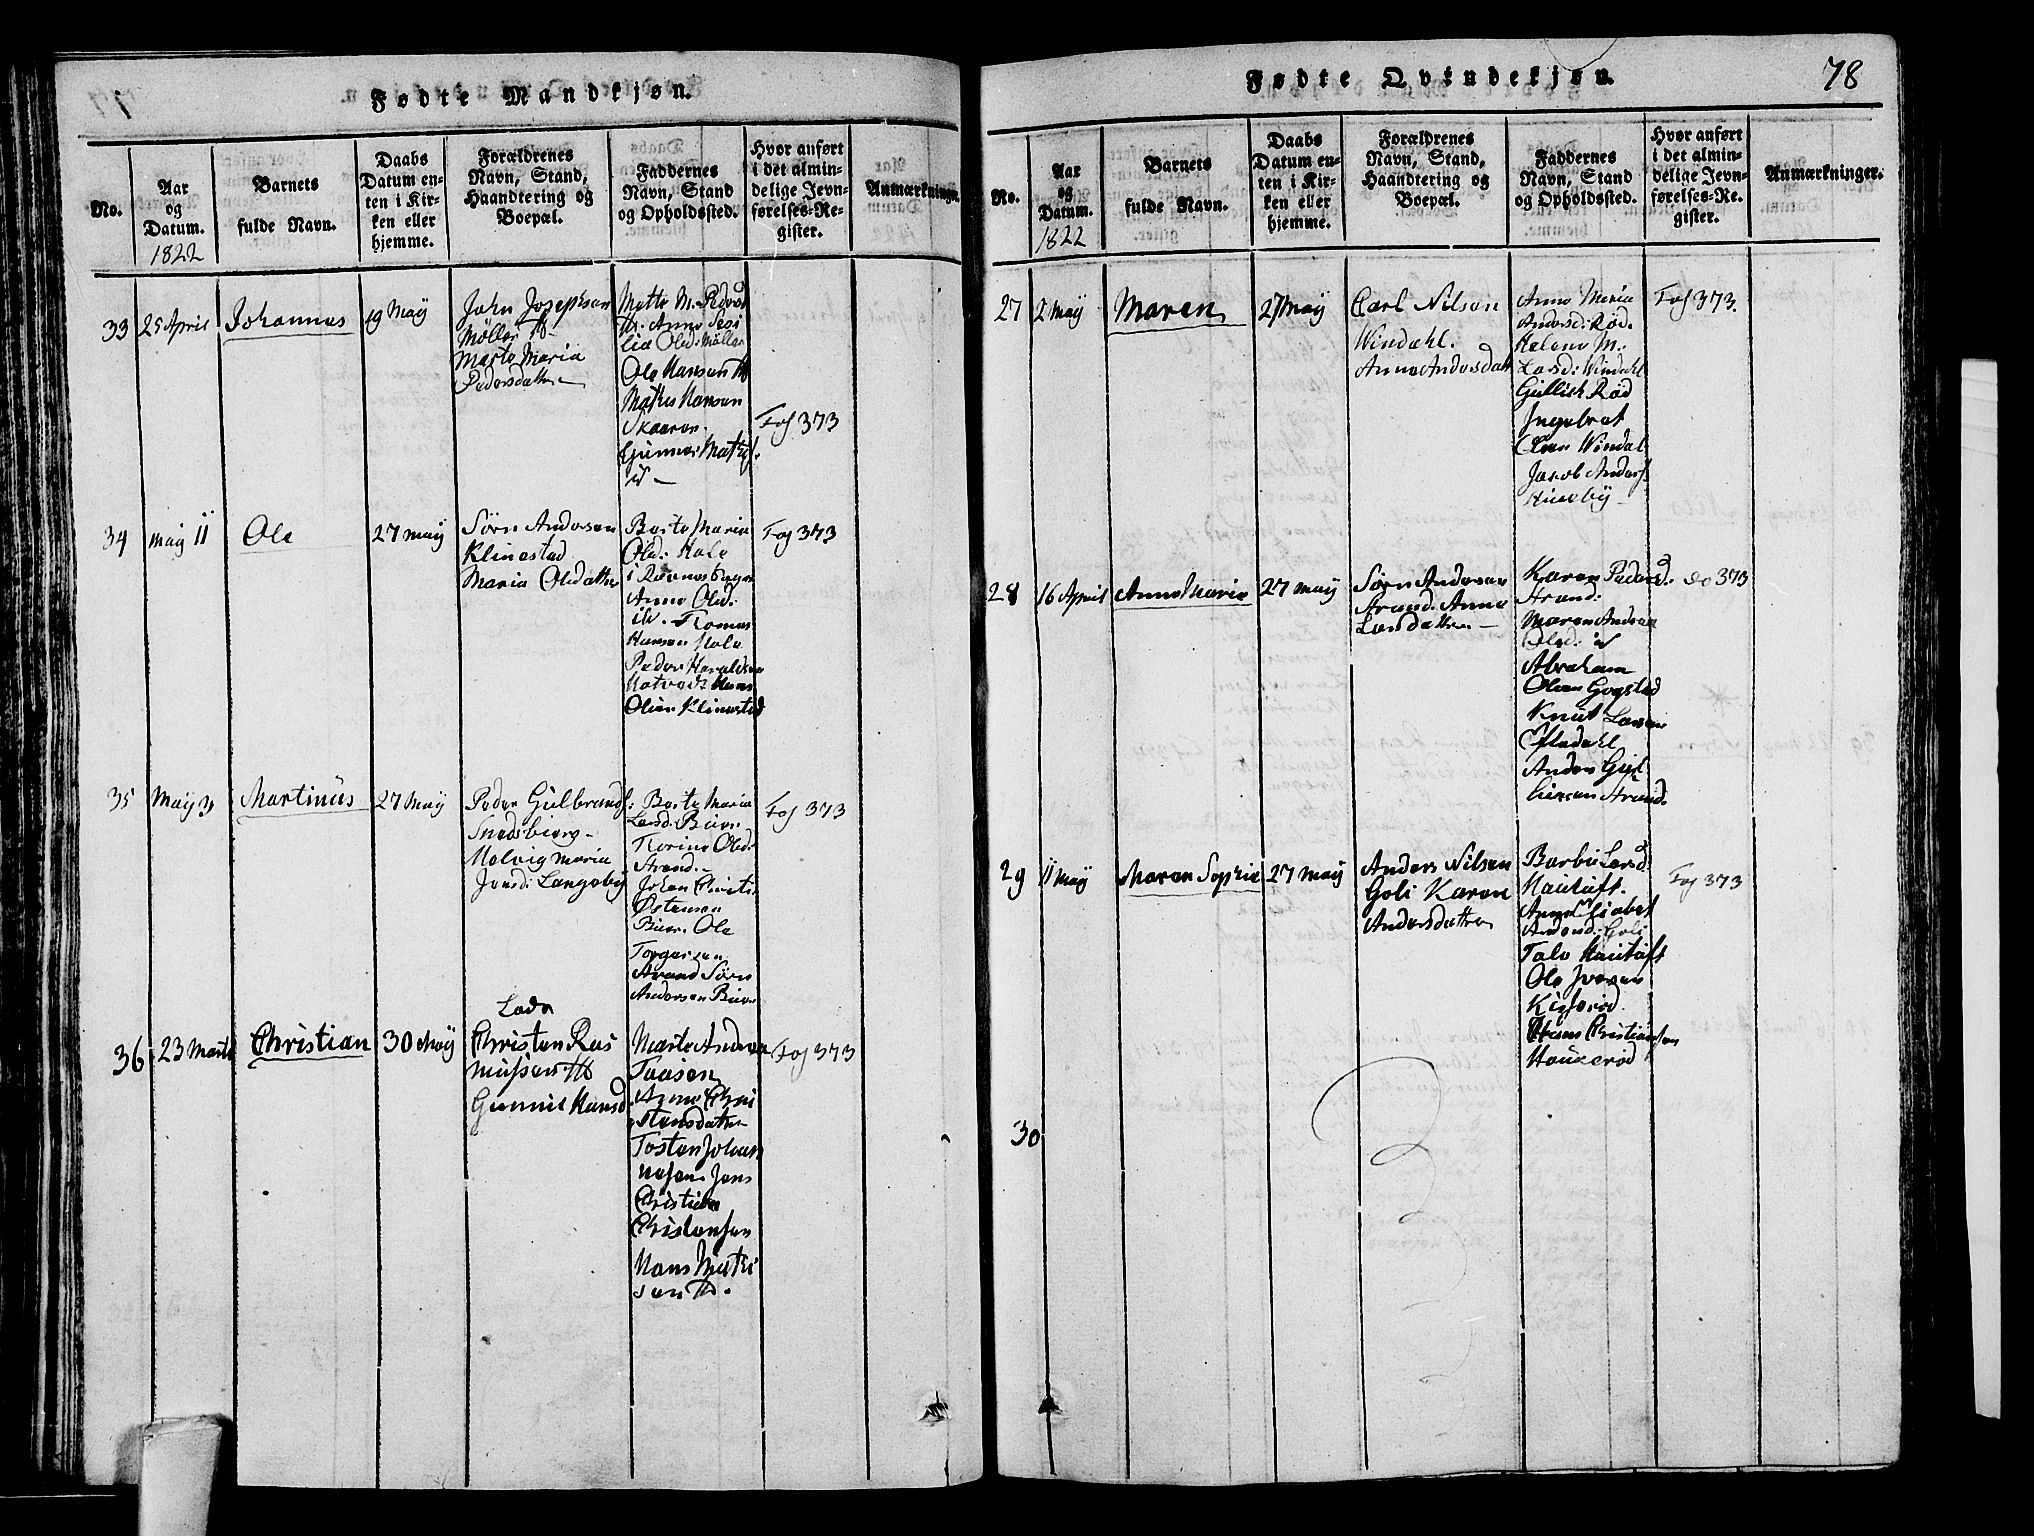 Fødte Mandkjøn.
No.
Aar
og
Datum.
1822
Barnets
fulde Navn.
Daabs
Datum en-
ten i Kir-
ken eller
hjemme.
Forældrenes
Navn, Stand,
Haandtering og
Boepæl.
Faddernes
Navn, Stand
og Opholdssted.
Hvor anført
i det almin-
delige Jevn-
førelses-Re-
gister.
Anmærkninger
33
25 April
Johannes
19 Maÿ
John Josephsen
Møller
Marte Maria
Pedersdatter
Ole Hansen
Mathis Hansen
Skaaren.
Fol 373
34
maÿ 11
Ole
27 maÿ
Sørn Andersen
Klinestad
Maria Olsdatter
Berte Maria
Olsd: Hole
Anne Olsd:
Tomas
Hansen Hole
Peder Haraldsen
Hans
Olsen Klinestad
Fol 373
35
Maÿ 3
Martinus
27 Maÿ
Peder Gulbrands:
Snedsbierg
Maria
Jansd: Langebÿ
Berte Maria
Larsd: Buer
Torine Olsd:
Strand
Johan Christ:
Østensen
Buer. Ole
Torgersen
Strand Sørn
Andersen Buer
Fol 373
36
23 Marts
Christian
30 Maÿ
Christen Ras
mussen
Gunnil Hansd:
Marte Anders
Taasen
Anne Chri
stensdatter
Tosten Johan
nesen Jens
Christian
Christensen
Hans
Fol 373
Fødte Qvindekjøn.
78
No.
Aar
og
Datum.
1822
Barnets
fulde Navn.
Daabs
Datum en-
ten i Kir-
ken eller
hjemme.
Forældrenes
Navn, Stand,
Haandtering og
Boepæl.
Faddernes
Navn, Stand
og Opholdssted.
Hvor anført
i det almin-
delige Jevn-
førelses-Re-
gister.
Anmærkninger.
27
2 maÿ
Maren
27 Maÿ
Carl Nilsen
Windahl.
Anne Andersdatt
Anne Maria
Andersd: Rød.
Helene M:
Larsd: Windahl
Gullich Rød
Ingebret
Olsen Windal
Jacob Anders:
Husebÿ
Fol 373.
28
16 April
Anne Marie
27 maÿ
Sørn Andersen
Strand. Anne
Larsdatter
Karen Pedersd:
Strand:
Maren Andrea
Olsd:
Abraham
Olsen Gogstad
Knut Larsen
Anders Gul
liksen Strand.
do 373
29
11 maÿ
Maren Sophie
27 maÿ
Anders Nilsen
Goli Karen
Andersdatter
Barbu Larsd:
Hautuft.
Anne Lisabet
Andersd: Goli
Tale Hautuft
Ole Iversen
Hans Christiansen
Haukerød
Fol 373
30